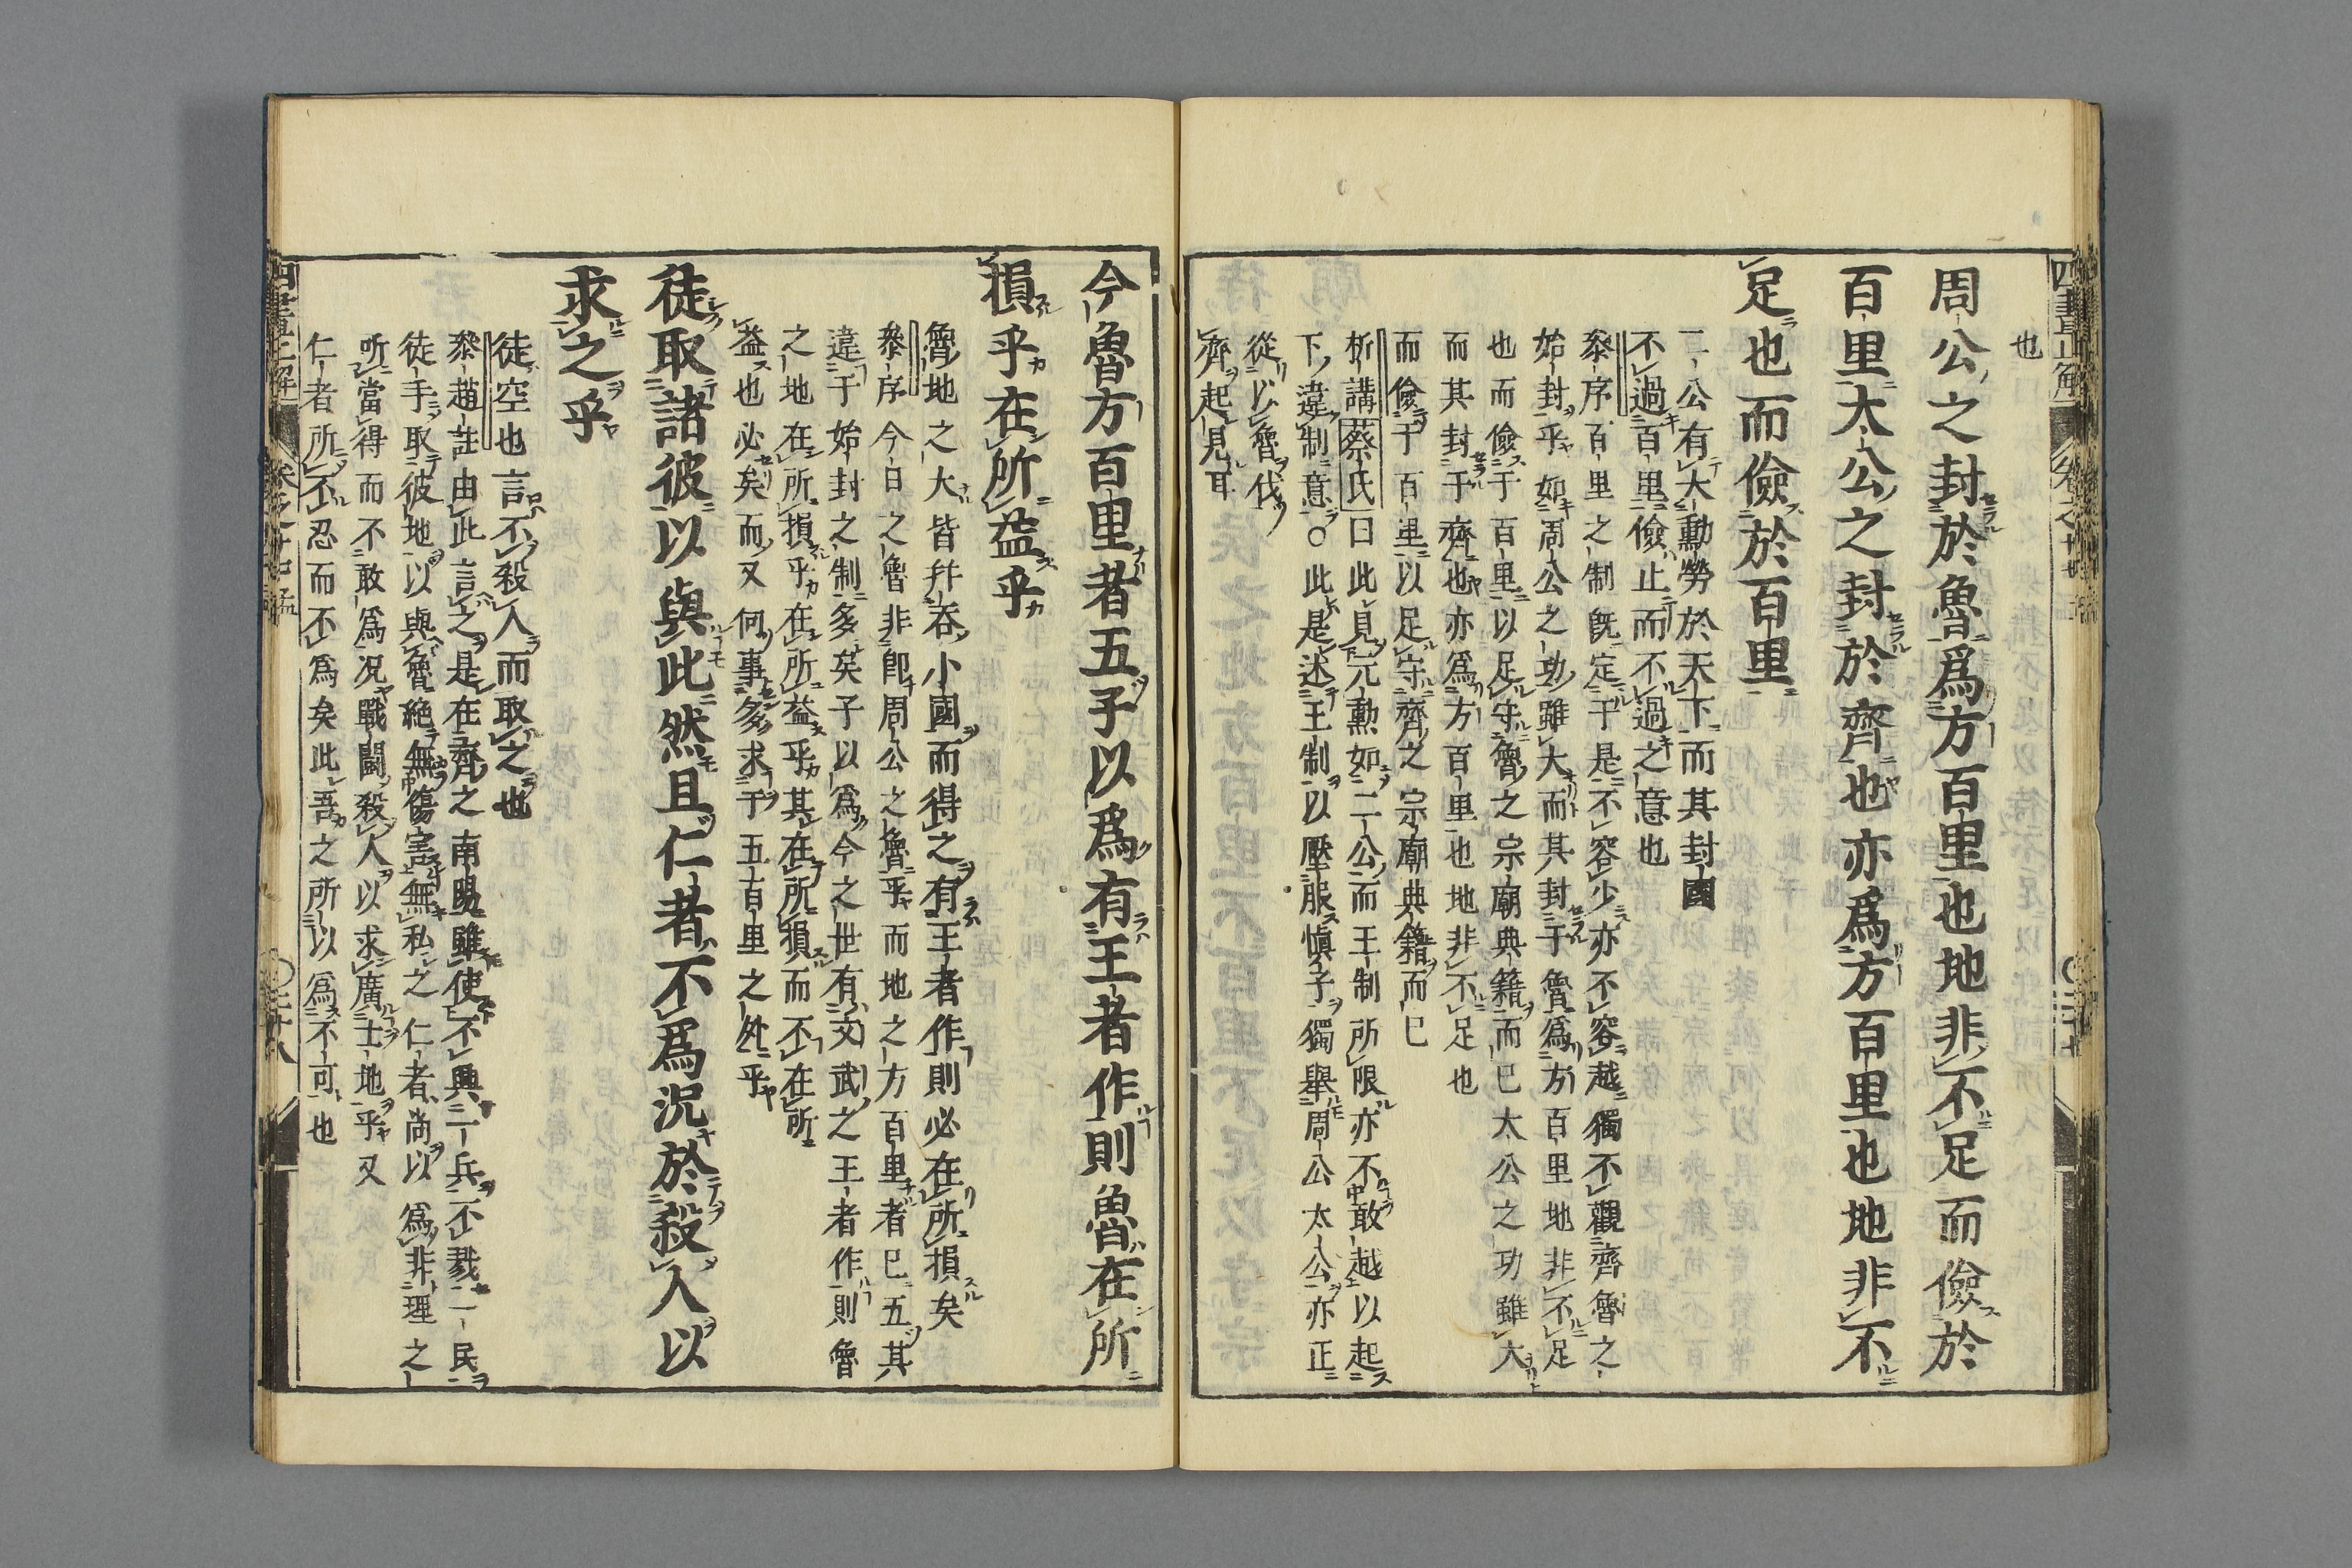 也
周公之封於魯爲方百里也地非不足而儉於
百里太公之封於齊也亦爲方百里也地非不
足也而儉於百里
二公有大勳勞於天下而其封國
不過百里儉止而不過之意也
叅序百里之制既定于是不容少亦不容越獨不觀齊魯之
始封乎如周公之功雖大而其封于魯爲方百里地非不足
也而儉于百里以足守魯之宗廟典籍而已太公之功雖大
而其封于齊也亦爲方百里也地非不足也
而儉于百里以足守齊之宗廟典籍而已
析講蔡氏曰此見元勳如二公而王制所限亦不敢越以起
下違制意○此是述王制以壓服慎子獨舉周公太公亦正
從以魯伐
齊起見耳
今魯方百里者五子以爲有王者作則魯在所
損乎在所益乎
魯地之大皆并吞小國而得之有王者作則必在所損矣
叅序今日之魯非卽周公之魯乎而地之方百里者已五其
違于始封之制多矣子以爲今之世有文武之王者作則魯
之地在所損乎在所益乎其在所損而不在所
益也必矣而又何事多求于五百里之外乎
徒取諸彼以與此然且仁者不爲況於殺人以
求之乎
徒空也言不殺人而取之也
叅趙註由此言之是在齊之南陽雖使不興一兵不戮一民
徒手取彼地以與魯絕無傷害無私之仁者尚以爲非理之
所當得而不敢爲况戰鬪殺人以求廣土地乎又
仁者所不忍而不爲矣此吾之所以爲不可也